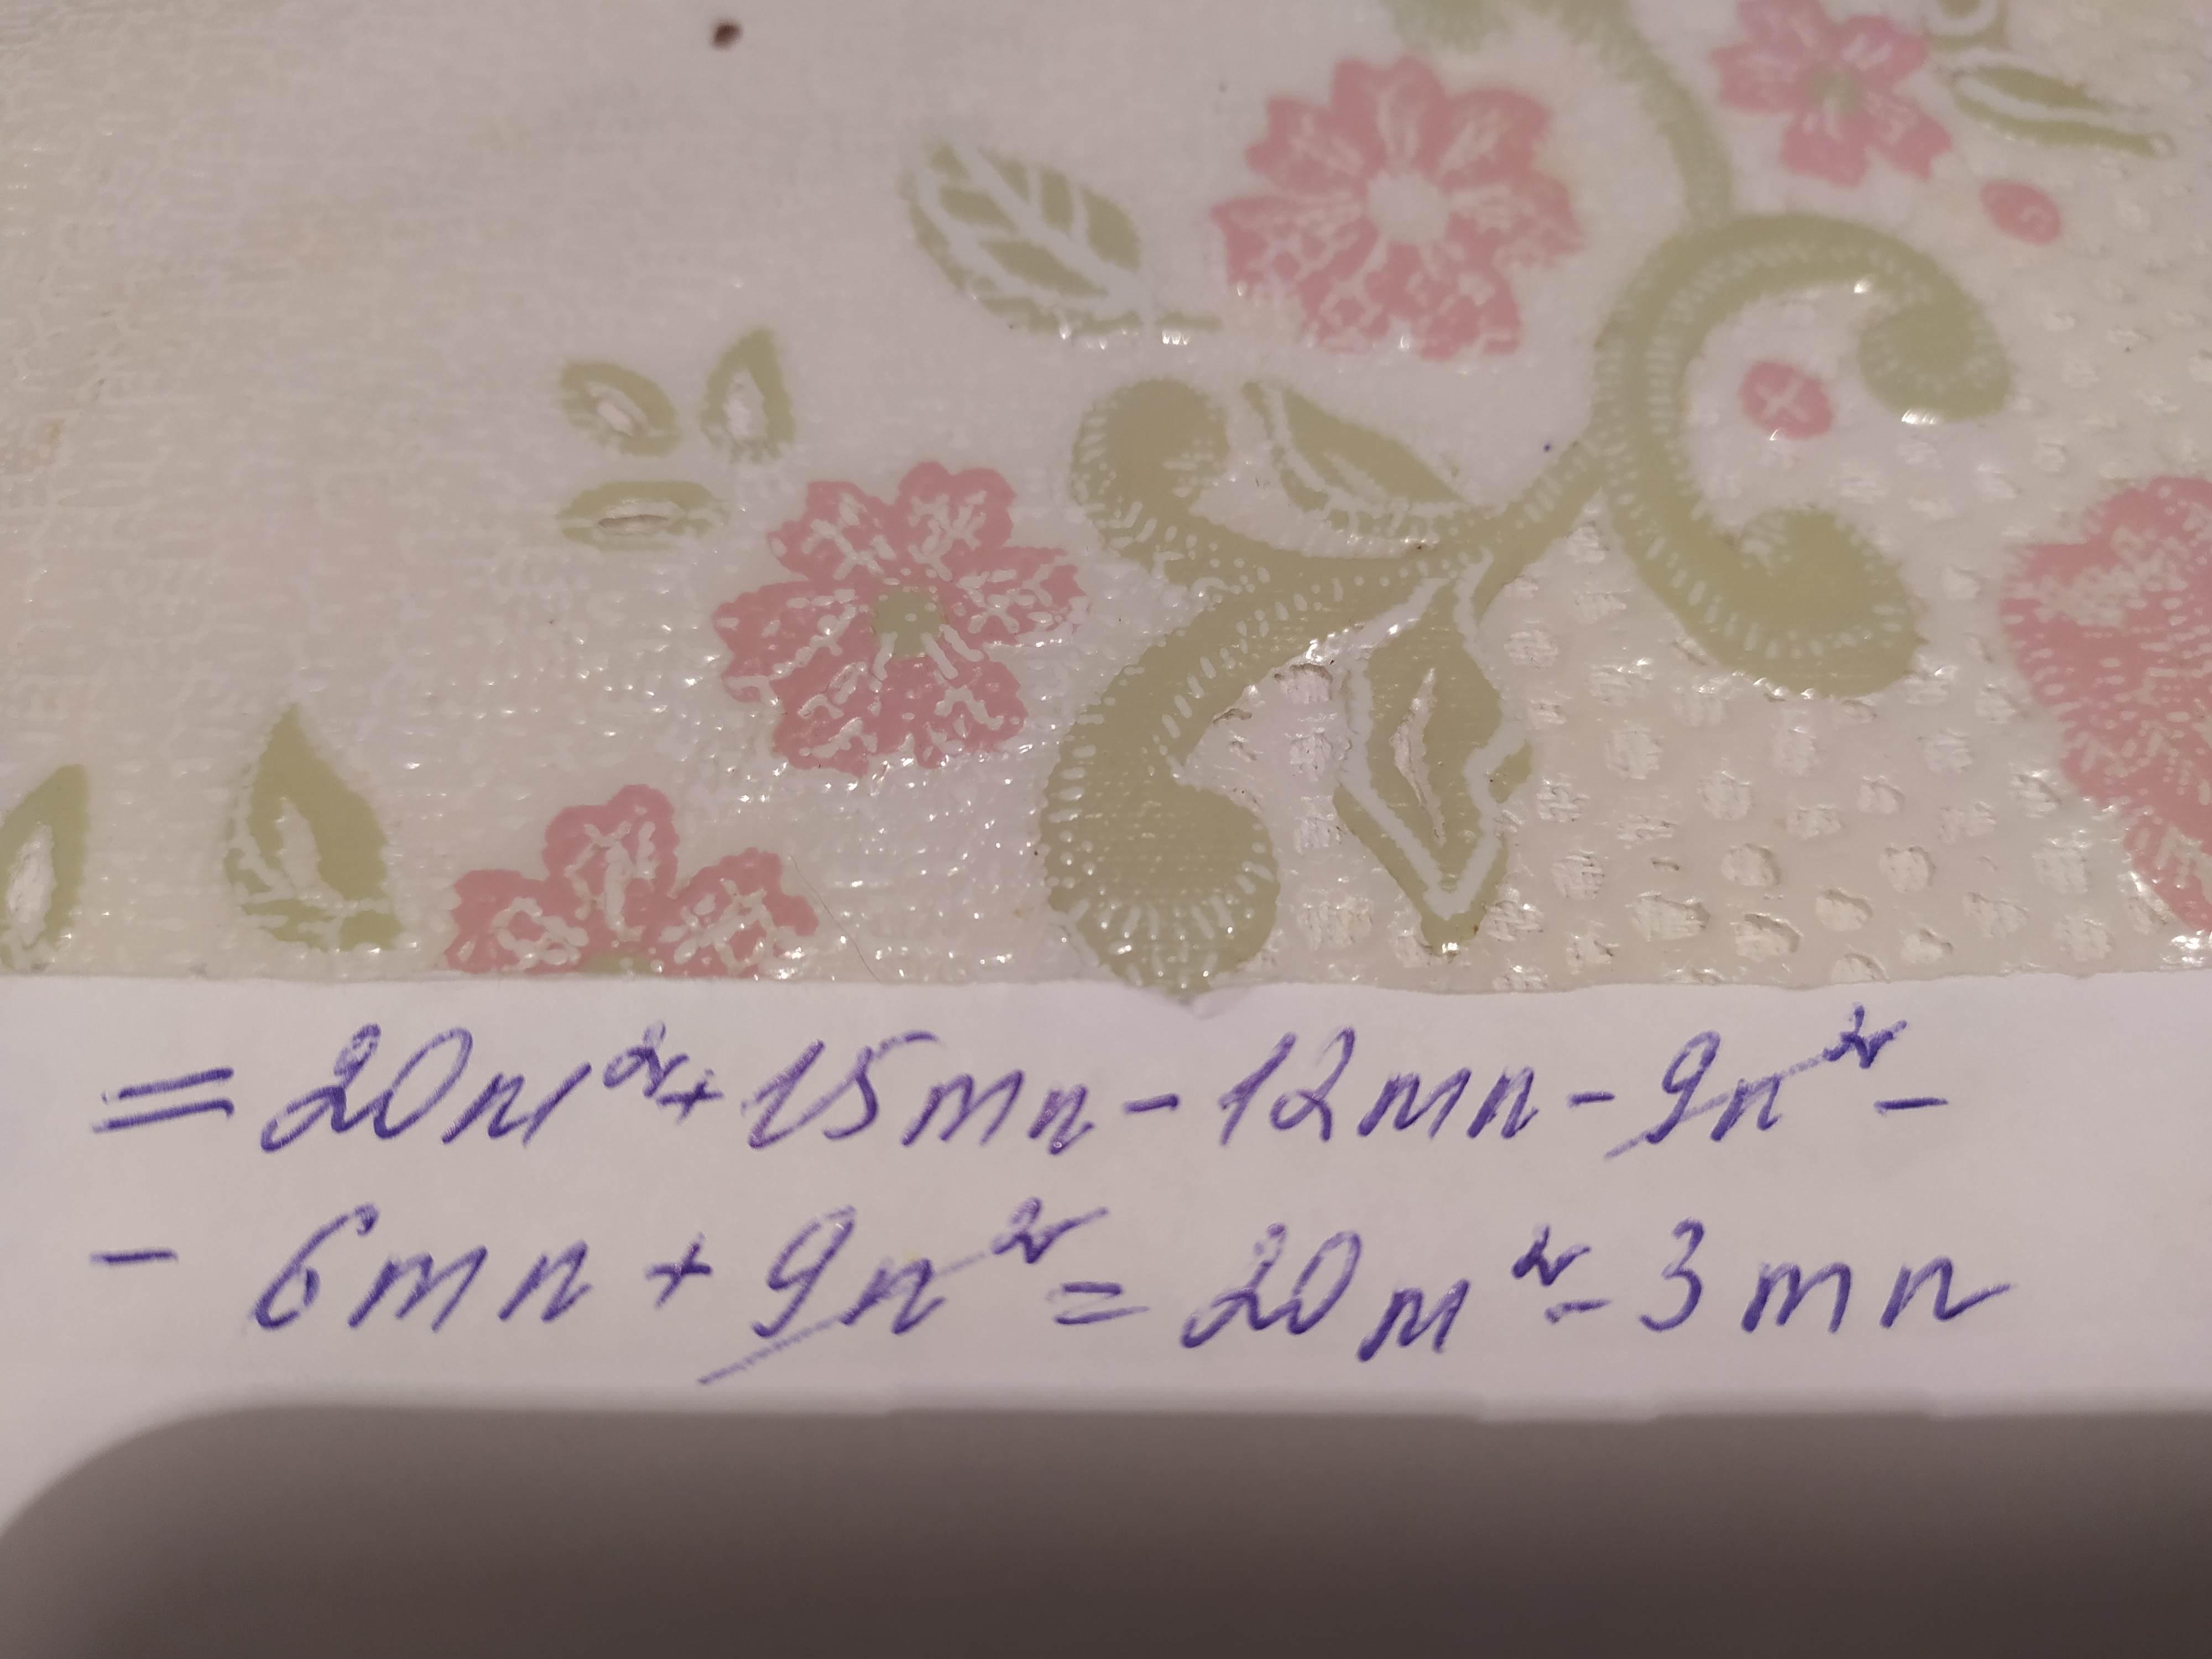 = 20m² + 15mn - 12mn - 9n² -
- 6mn + 9n² = 20m² - 3mn